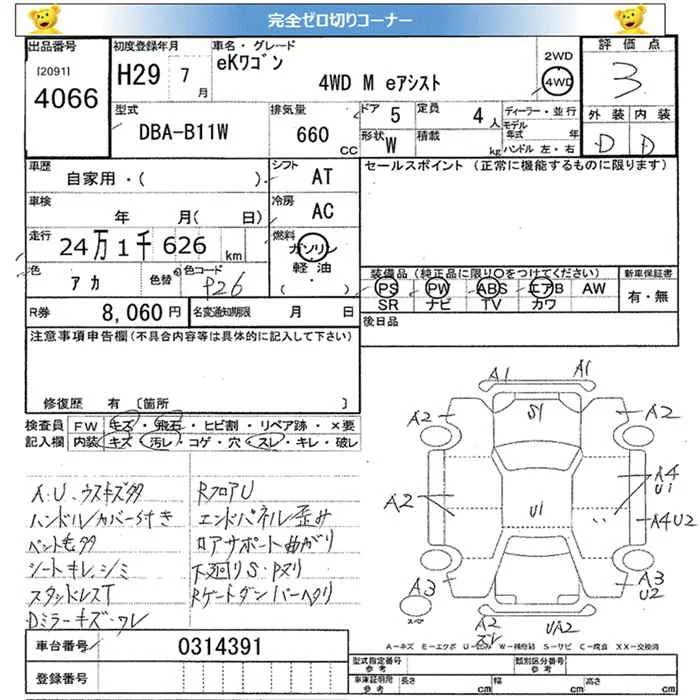 完全ゼロ切りコーナー
出品番号
[2091]
4066
初度登録年月
H29 7 月
車名・グレード
eKワゴン
4WD M eアシスト
2WD
4WD
評価点
3
外装 内装
D D
型式
DBA-B11W
排気量
660 CC
ドア 5
定員 4 人
形状 W
積載 kg
ディーラー・並行
モデル年式 年
ハンドル 左・右
車歴
自家用・( )
シフト AT
セールスポイント (正常に機能するものに限ります)
車検
年 月( 日)
冷房 AC
走行
24万1千626 km
燃料
ガソリン
軽油
・( )
色 アカ
色替
色コード P26
装備品 (純正品に限り○をつけてください)
PS PW ABS エアB AW
SR ナビ TV カワ
新車保証書
有・無
R券 8,060円
名変通知期限 月 日
後日品
注意事項申告欄(不具合内容等は具体的に記入して下さい)
修復歴 有 [箇所 ]
検査員記入欄
FW キズ・飛石・ヒビ割・リペア跡・×要
内装 キズ・汚レ・コゲ・穴・スレ・キレ・破レ
A.U、ウスキズ多
ハンドルカバーS付き
ペント毛多
シートキレ、シミ
スタッドレスT
Dミラーキズ・ワレ
RフロアU
エンドパネル歪み
ロアサポート曲がり
下廻りS・Pヌリ
Rゲートダンパーヘタリ
A1 A1
A2 S1 A2
A2 U1 A4
U1
A4U2
A3 A3
U2
スペア
A2
ズレ
UA2
A=キズ E=エクボ U=ヒコミ W=補修跡 S=サビ C=腐食 XX=交換済
車台番号 0314391
登録番号
型式指定番号
参考
類別区分番号
参考
車庫証明用
参考
長さ cm 幅 cm 高さ cm